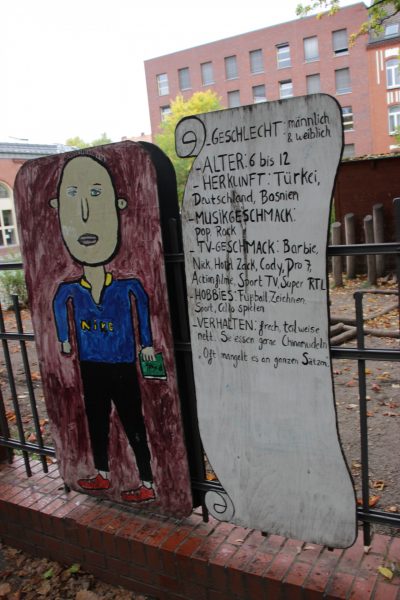 -GESCHLECHT: männlich
& weiblich
-ALTER: 6 bis 12
-HERKUNFT: Türkei,
Deutschland, Bosnien
-MUSIKGESCHMACK:
Pop, Rock
-TV-GESCHMACK: Barbie,
Nick, Zack, Cody, Pro 7,
Actionfilme, Sport TV, Super RTL
-HOBBIES: Fußball, Zeichnen
Sport, Cello spielen
-VERHALTEN: frech, teilweise
nett. Sie essen gerne Chinanudeln
. Oft mangelt es an ganzen Sätzen.
Nike